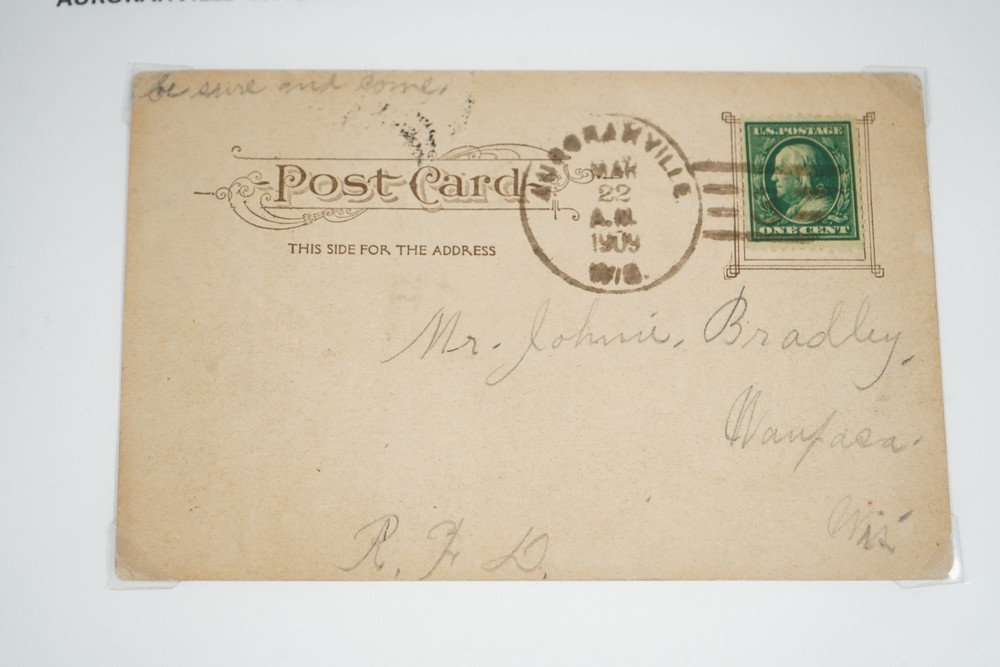 be sure and come.
Post Card
THIS SIDE FOR THE ADDRESS
AURORAHVILLE
MAR
22
A.M.
1909
WIS.
U.S. POSTAGE
ONE CENT
Mr. Johnie. Bradley.
Waupaca.
Wis.
R. F. D.